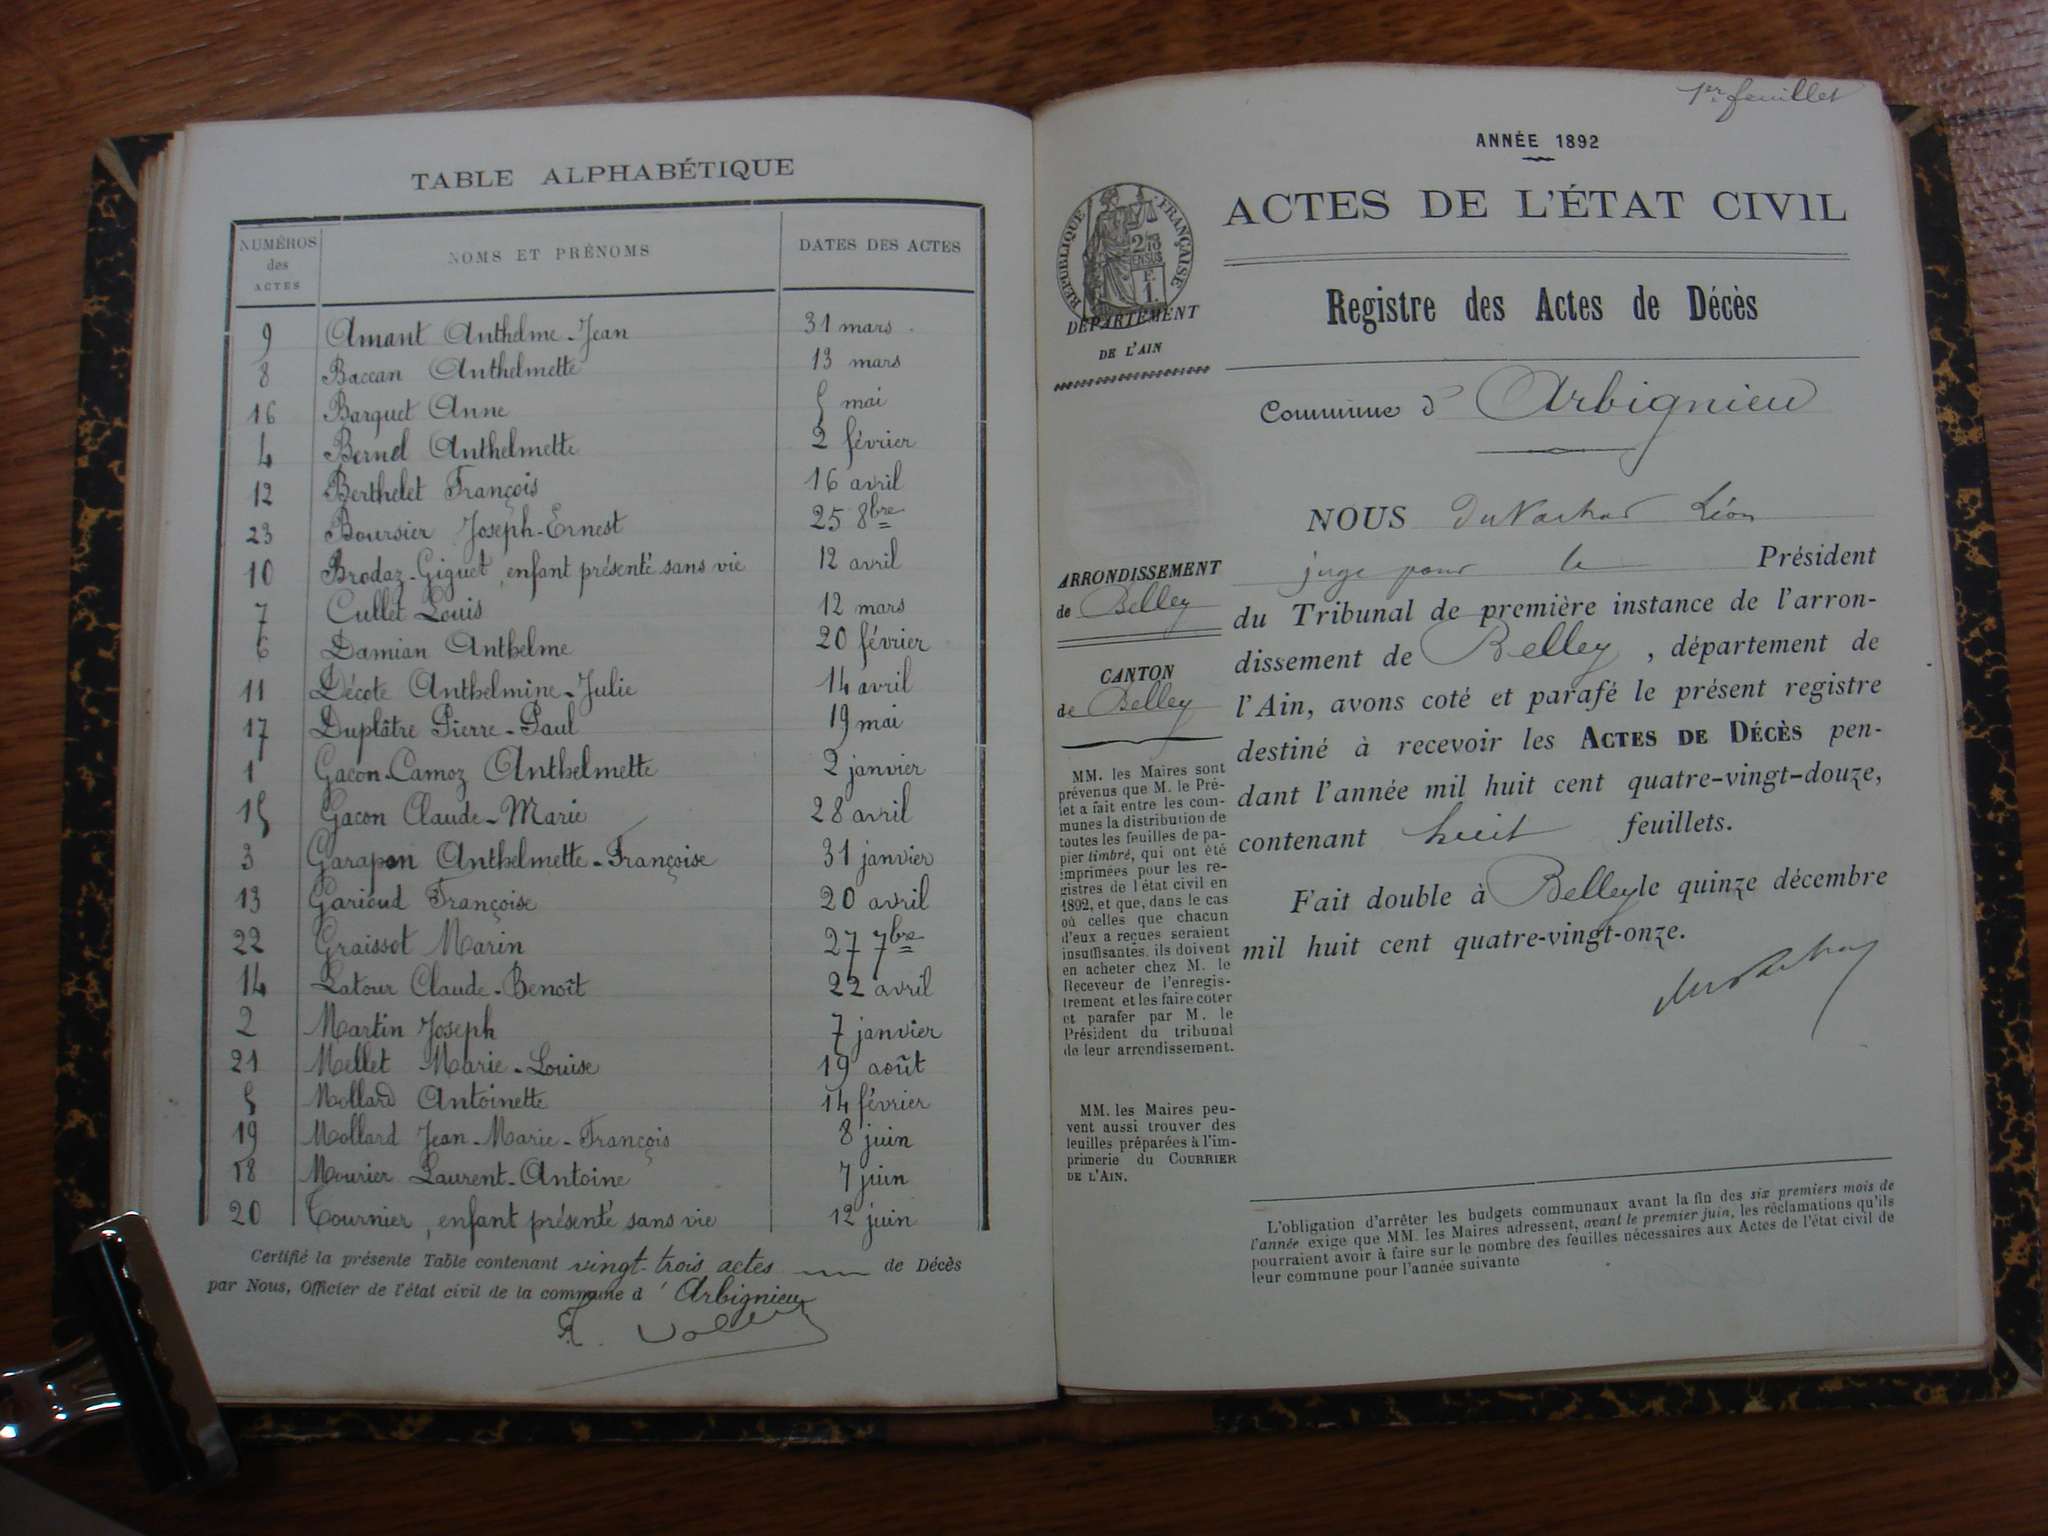 TABLE ALPHABÉTIQUE
NUMÉROS des ACTES NOMS ET PRÉNOMS DATES DES ACTES
9 Amant Anthelme-Jean 31 mars
8 Baccan Anthelmette 13 mars
16 Barquet Anne 5 mai
4 Bernel Anthelmette 2 février
12 Berthelet François 16 avril
23 Boursier Joseph-Ernest 25 8bre
10 Brodaz-Giguet, enfant présenté sans vie 12 avril
7 Cullet Louis 12 mars
6 Damian Anthelme 20 février
11 Décote Anthelmine-Julie 14 avril
17 Duplâtre Pierre-Paul 19 mai
1 Gacon-Camoz Anthelmette 2 janvier
15 Gacon Claude-Marie 28 avril
3 Garapon Anthelmette-Françoise 31 janvier
13 Garioud Françoise 20 avril
22 Graissot Marin 27 7bre
14 Latour Claude-Benoît 22 avril
2 Martin Joseph 7 janvier
21 Mellet Marie-Louise 19 août
5 Mollard Antoinette 14 février
19 Mollard Jean-Marie-François 8 juin
18 Mourier Laurent-Antoine 7 juin
20 Tournier, enfant présenté sans vie 12 juin
Certifié la présente Table contenant vingt-trois actes de Décès
par Nous, Officier de l'état civil de la commune d'Arbignieu
1er feuillet
ANNÉE 1892
ACTES DE L'ÉTAT CIVIL
RÉPUBLIQUE FRANÇAISE
DÉPARTEMENT
DE L'AIN
Registre des Actes de Décès
Commune d'Arbignieu
ARRONDISSEMENT
de Belley
CANTON
de Belley
MM. les Maires sont
prévenus que M. le Pré-
fet a fait entre les com-
munes la distribution de
toutes les feuilles de pa-
pier timbré, qui ont été
imprimées pour les re-
gistres de l'état civil en
1892, et que, dans le cas
où celles que chacun
d'eux a reçues seraient
insuffisantes, ils doivent
en acheter chez M. le
Receveur de l'enregis-
trement et les faire coter
et parafer par M. le
Président du tribunal
de leur arrondissement.
MM. les Maires peu-
vent aussi trouver des
feuilles préparées à l'im-
primerie du COURRIER
DE L'AIN.
NOUS Léon
juge pour le Président
du Tribunal de première instance de l'arron-
dissement de Belley, département de
l'Ain, avons coté et parafé le présent registre
destiné à recevoir les ACTES DE DÉCÈS pen-
dant l'année mil huit cent quatre-vingt-douze,
contenant huit feuillets.
Fait double à Belley le quinze décembre
mil huit cent quatre-vingt-onze.
L'obligation d'arrêter les budgets communaux avant la fin des six premiers mois de
l'année exige que MM. les Maires adressent, avant le premier juin, les réclamations qu'ils
pourraient avoir à faire sur le nombre des feuilles nécessaires aux Actes de l'état civil de
leur commune pour l'année suivante